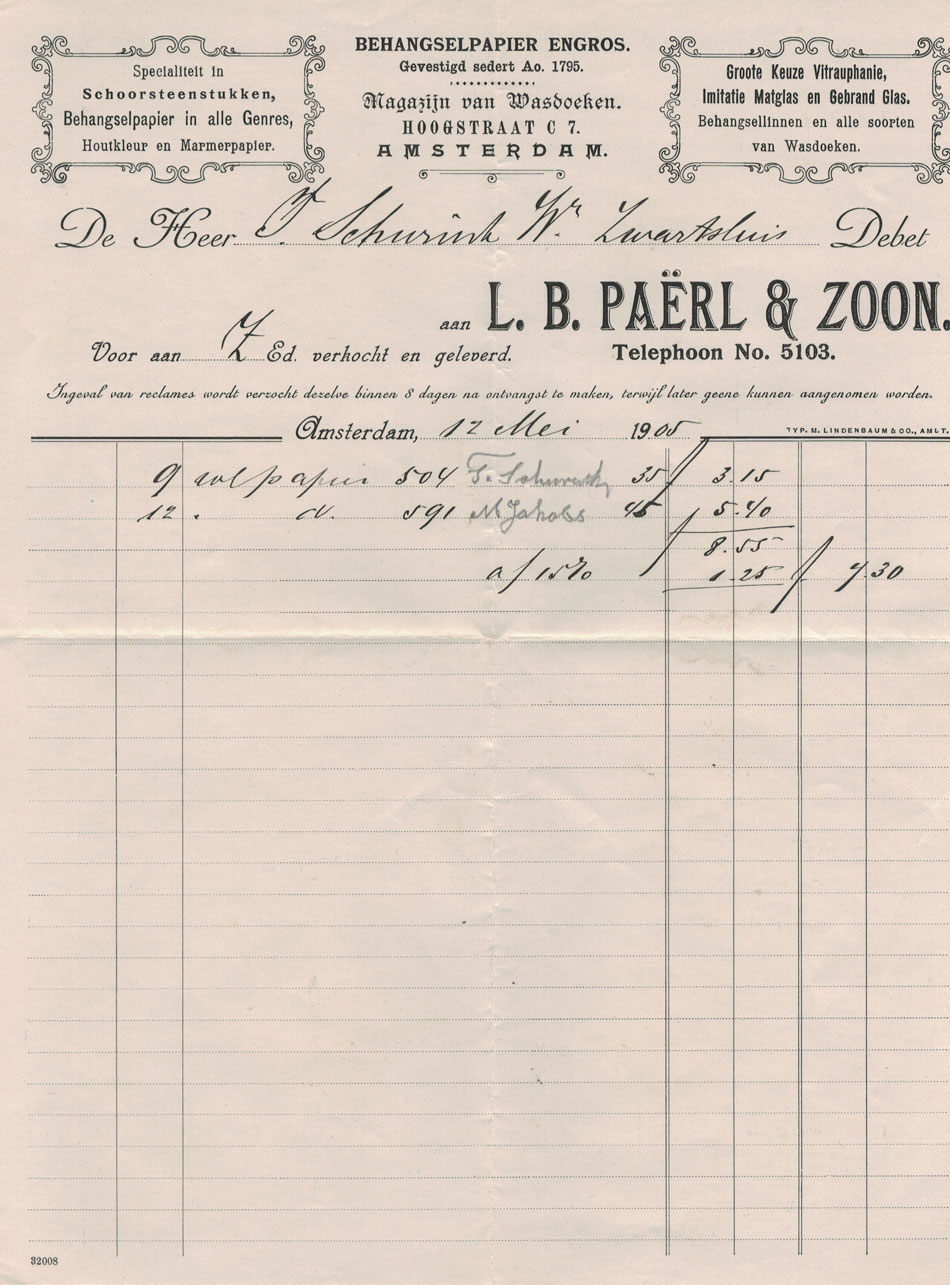 Specialiteit in
Schoorsteenstukken,
Behangselpapier in alle Genres,
Houtkleur en Marmerpapier.
BEHANGSELPAPIER ENGROS.
Gevestigd sedert Ao. 1795.
Magazijn van Wasdoeken.
HOOGSTRAAT C 7.
AMSTERDAM.
Groote Keuze Vitrauphanie,
Imitatie Matglas en Gebrand Glas.
Behangsellinnen en alle soorten
van Wasdoeken.
De Heer F. Schurink Wr Zwartsluis Debet
aan L. B. PAËRL & ZOON.
Voor aan Z Ed. verkocht en geleverd.
Telephoon No. 5103.
Ingeval van reclames wordt verzocht dezelve binnen 8 dagen na ontvangst te maken, terwijl later geene kunnen aangenomen worden.
Amsterdam, 12 Mei 1905
TYP. M. LINDENBAUM & CO., AMST.
9 rol papier 504 F. Schurink 35 f 3.15
12 " d. 591 M Jakobs 45 " 5.40
f 8.55
a/ 15% 1.25 f 7.30
32008